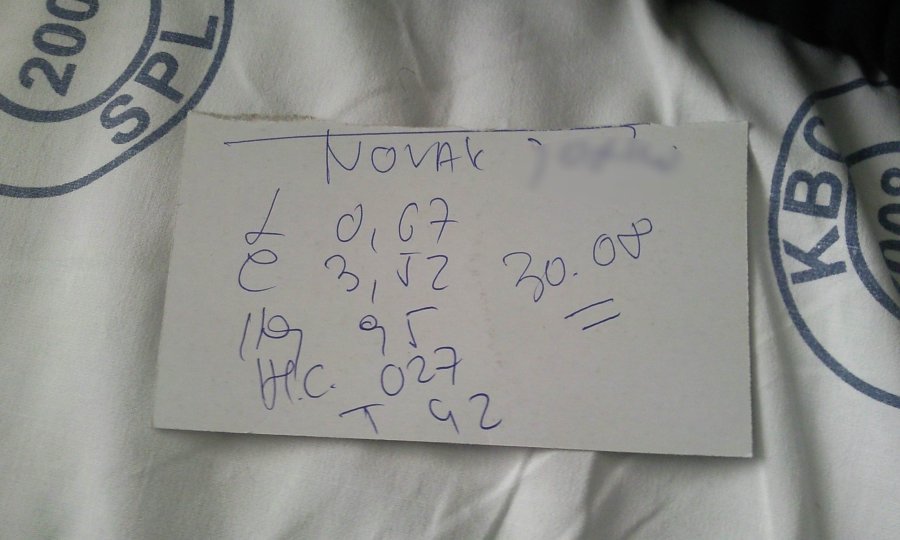 200
SPL
NOVAK
L 0,67
E 3,52
30.08
Hg 95
Ht.C. 027
T 42
KBC